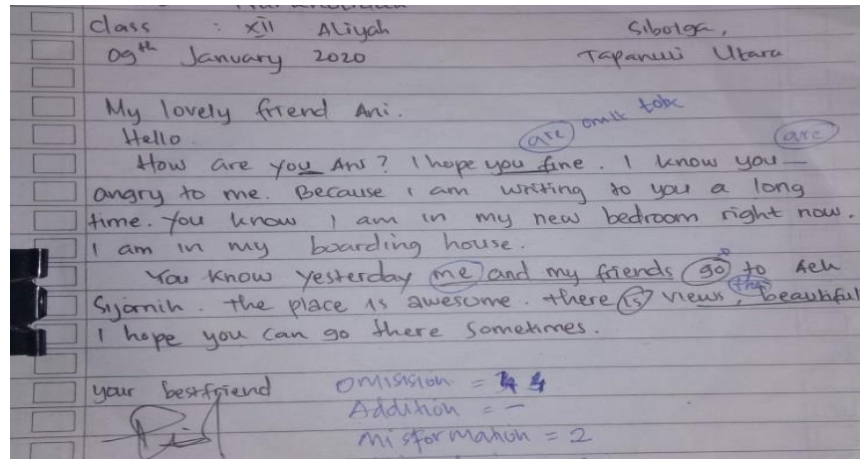 class : XII Aliyah Sibolga,
09th January 2020 Tapanuli Utara
My lovely friend Ani.
Hello are omit tobe are
How are you Ani? I hope you fine. I know you
angry to me. Because I am writing to you a long
time. You know I am in my new bedroom right now.
I am in my boarding house.
You know yesterday me and my friends go to Aek
Sijornih. the place is awesome. there is views, the beautiful
I hope you can go there sometimes.
your bestfriend Omission = 4
Addition = -
Misformation = 2